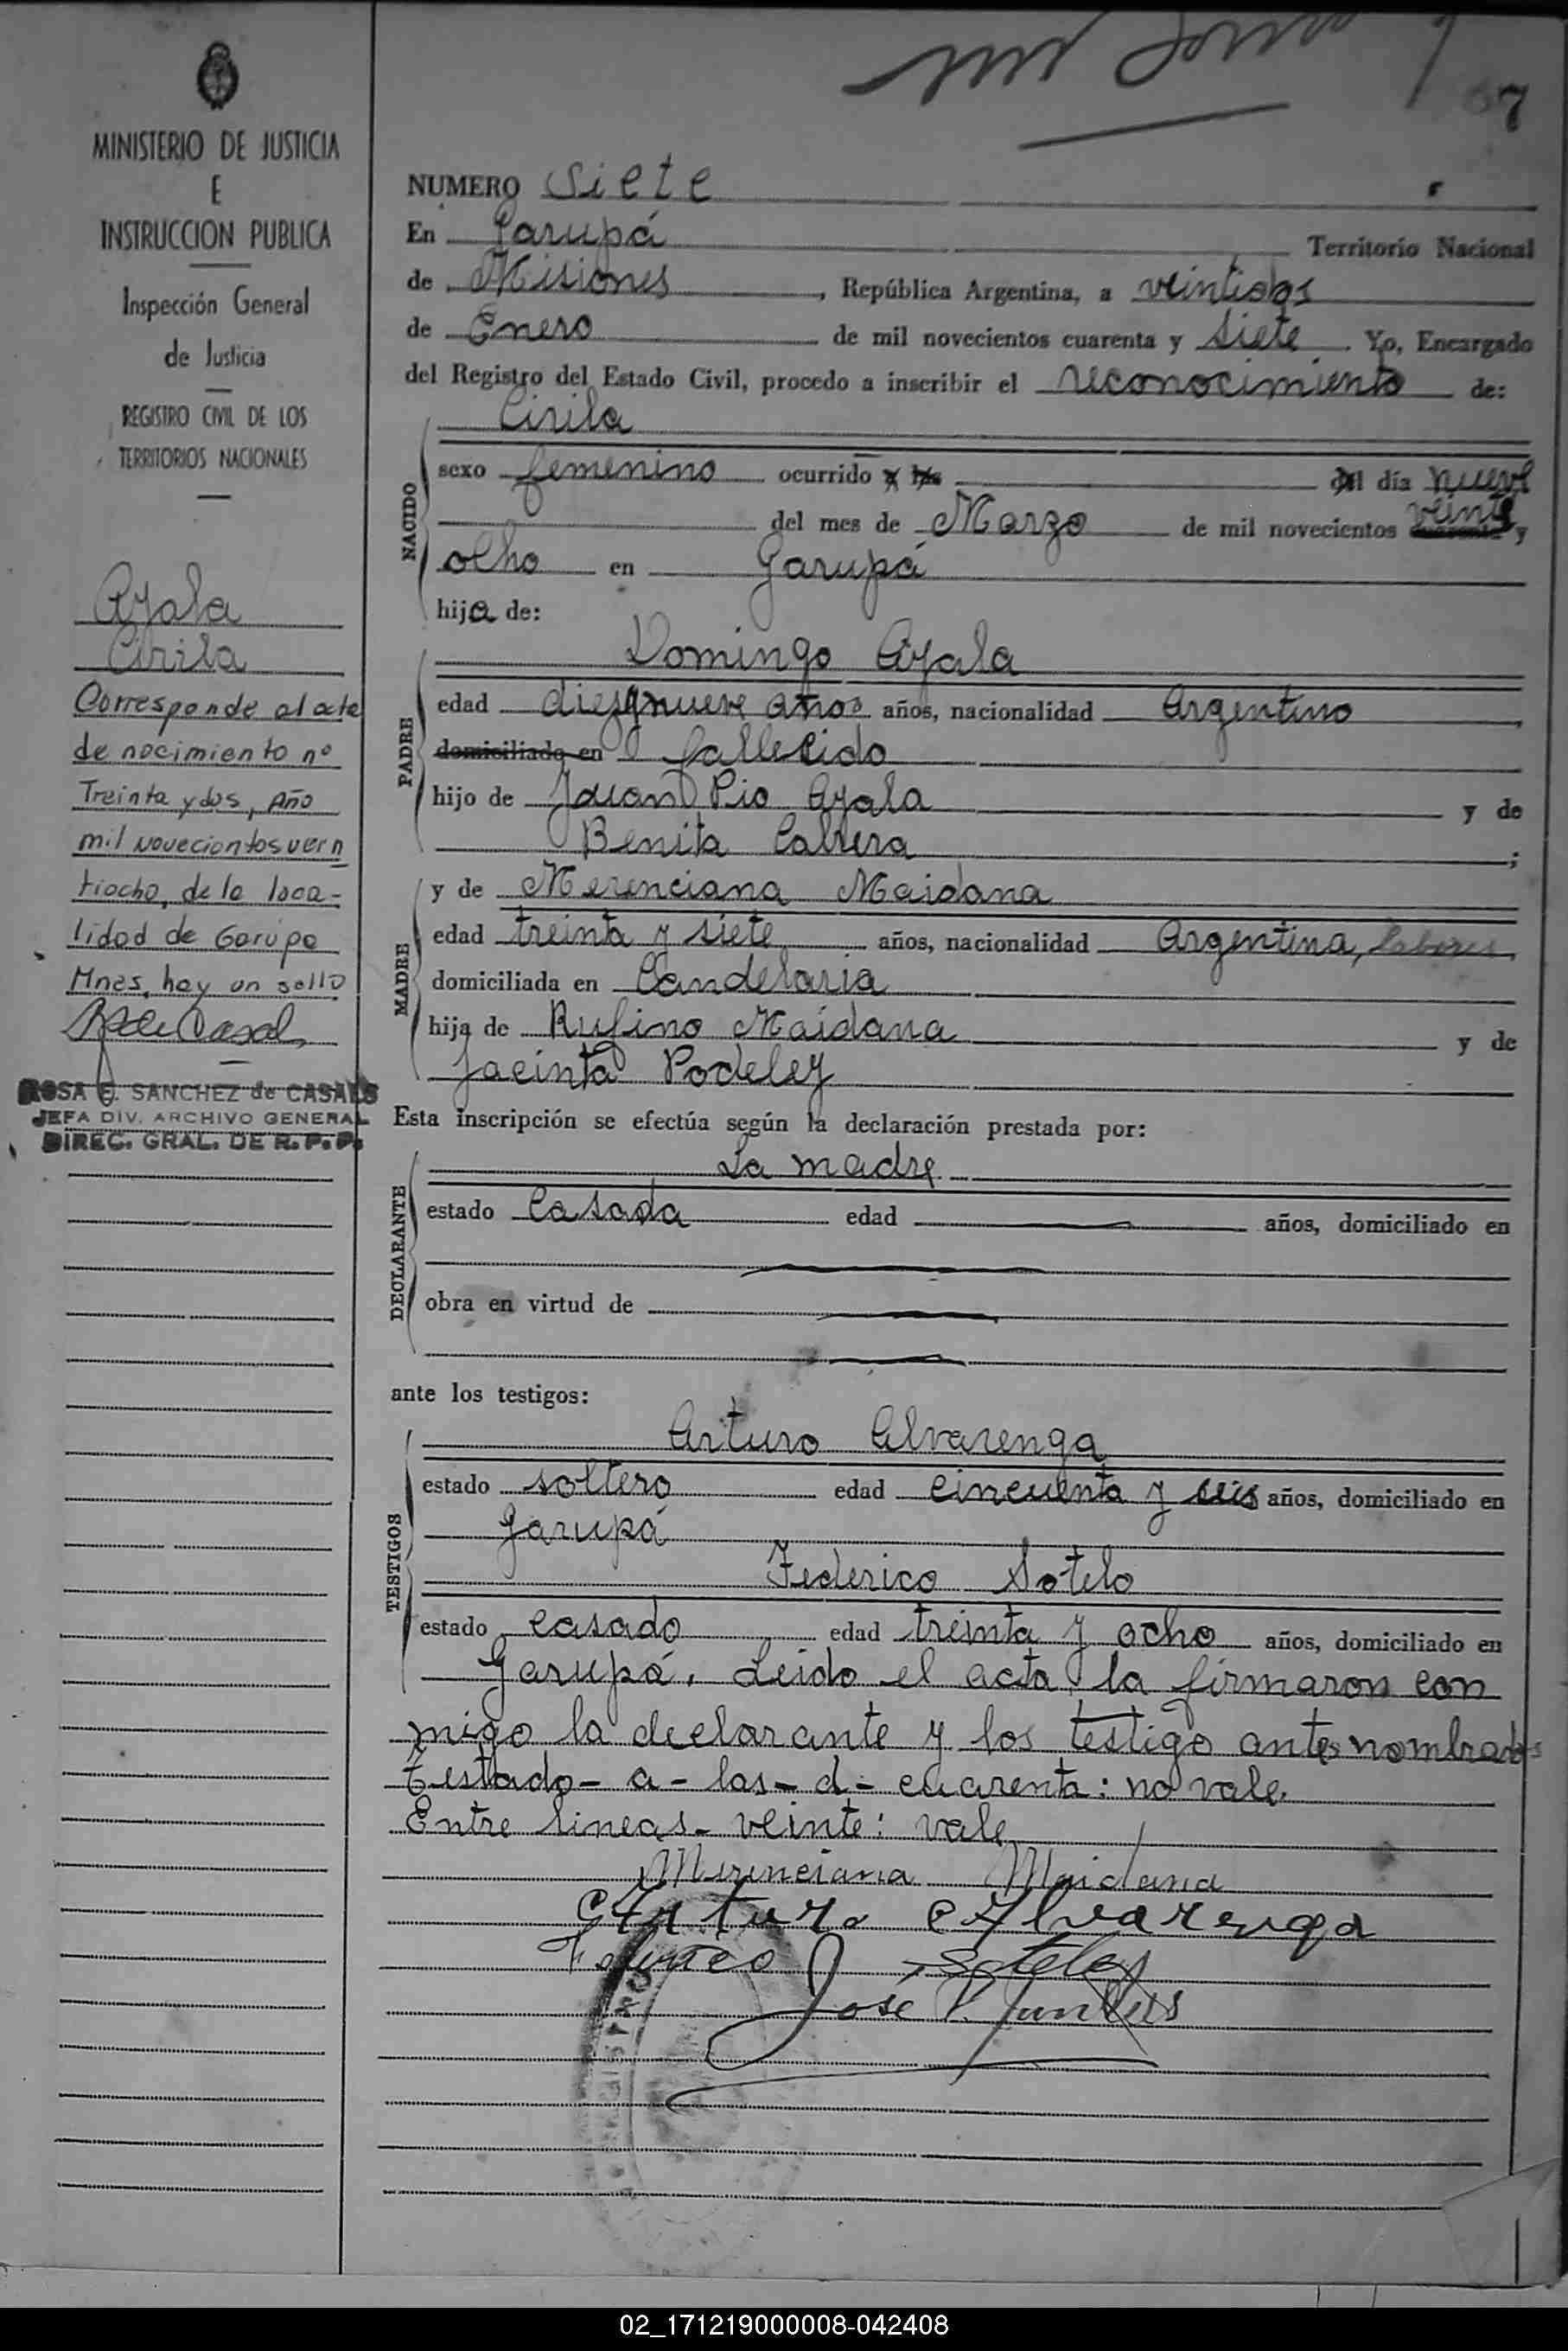 7
MINISTERIO DE JUSTICIA
E
INSTRUCCION PUBLICA
Inspección General
de Justicia
REGISTRO CIVIL DE LOS
TERRITORIOS NACIONALES
Ayala
Cirila
Corresponde al acta
de nacimiento nº
Treinta y dos, Año
mil novecientos vein
tiocho, de la loca-
lidad de Garupa
Mnes, hay un sello
ROSA E. SANCHEZ de CASALS
JEFA DIV. ARCHIVO GENERAL
DIREC. GRAL. DE R. P. P.
NUMERO Siete
En Garupá Territorio Nacional
de Misiones, República Argentina, a veintidos
de Enero de mil novecientos cuarenta y siete. Yo, Encargado
del Registro del Estado Civil, procedo a inscribir el reconocimiento de:
NACIDO
Cirila
sexo femenino ocurrido a las del día nueve
del mes de Marzo de mil novecientos cuarenta veinte y
ocho en Garupá
hija de:
PADRE
Domingo Ayala
edad diesynueve años años, nacionalidad Argentino,
domiciliado en fallecido
hijo de Juan Pio Ayala y de
Benita Cabrera;
MADRE
y de Merenciana Maidana
edad treinta y siete años, nacionalidad Argentina, labores,
domiciliada en Candelaria
hija de Rufino Maidana y de
Jacinta Podeley
Esta inscripción se efectúa según la declaración prestada por:
DECLARANTE
La madre
estado Casada edad años, domiciliado en
obra en virtud de
ante los testigos:
TESTIGOS
Arturo Alvarenga
estado soltero edad cincuenta y seis años, domiciliado en
Garupá
Federico Sotelo
estado casado edad treinta y ocho años, domiciliado en
Garupá. Leido el acta la firmaron con
migo la declarante y los testigo antes nombrados
Testado - a - las - d - cuarenta: no vale.
Entre lineas - veinte: vale
Merenciana Maidana
Arturo Alvarenga
Federico Sotelo
02_171219000008-042408